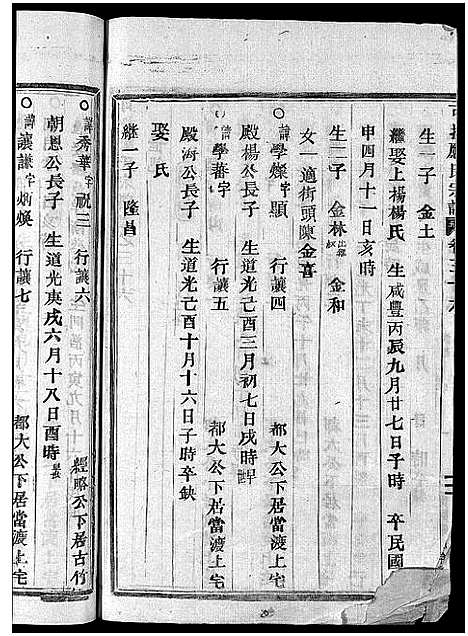 生一子　金土
繼娶上楊楊氏　生咸豐丙辰九月廿七日子時　卒民國
申四月十一日亥時
生二子　金林出繼　金和
女一適街頭陳金喜
諱學燦字顯　行讓四　都大公下居當渡上宅
殿楊公長子　生道光己酉三月初七日戌時
諱學蕃字　行讓五　都大公下居當渡上宅
殿海公長子　生道光己酉十月十六日子時卒缺
娶氏
繼一子　隆昌
諱秀華字祝三　行讓六　經略公下居古竹
朝恩公長子　生道光庚戌六月十八日酉時
諱讓謙字炳煥　行讓七　都大公下居當渡上宅